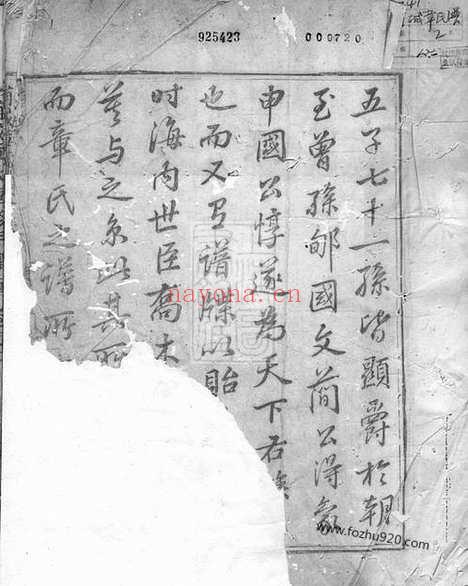 925423
000720
五子七十一孫皆顯爵於朝
至曾孫郇國文簡公得象
申國公惇遂為天下右族
也而又有譜牒以貽
时海內世臣喬木
莫与之京此其所
而章氏之譜所
nayona.cn
www.fozhu920.com